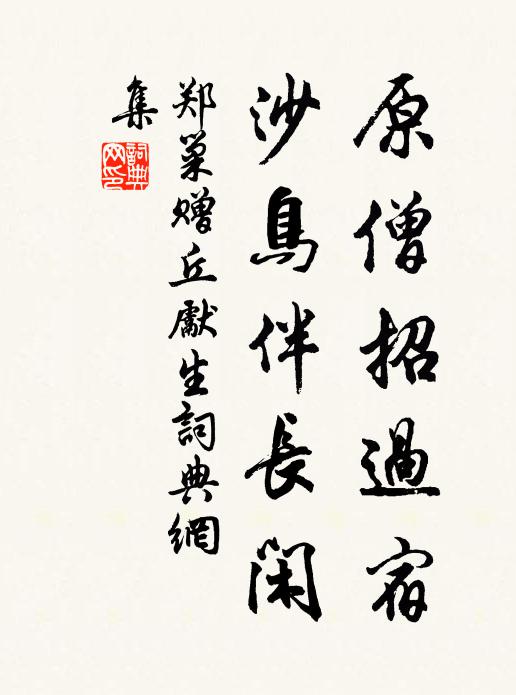 原僧招過宿
沙鳥伴長閑
郑巢赠丘獻生詞典網
集
詞典网印